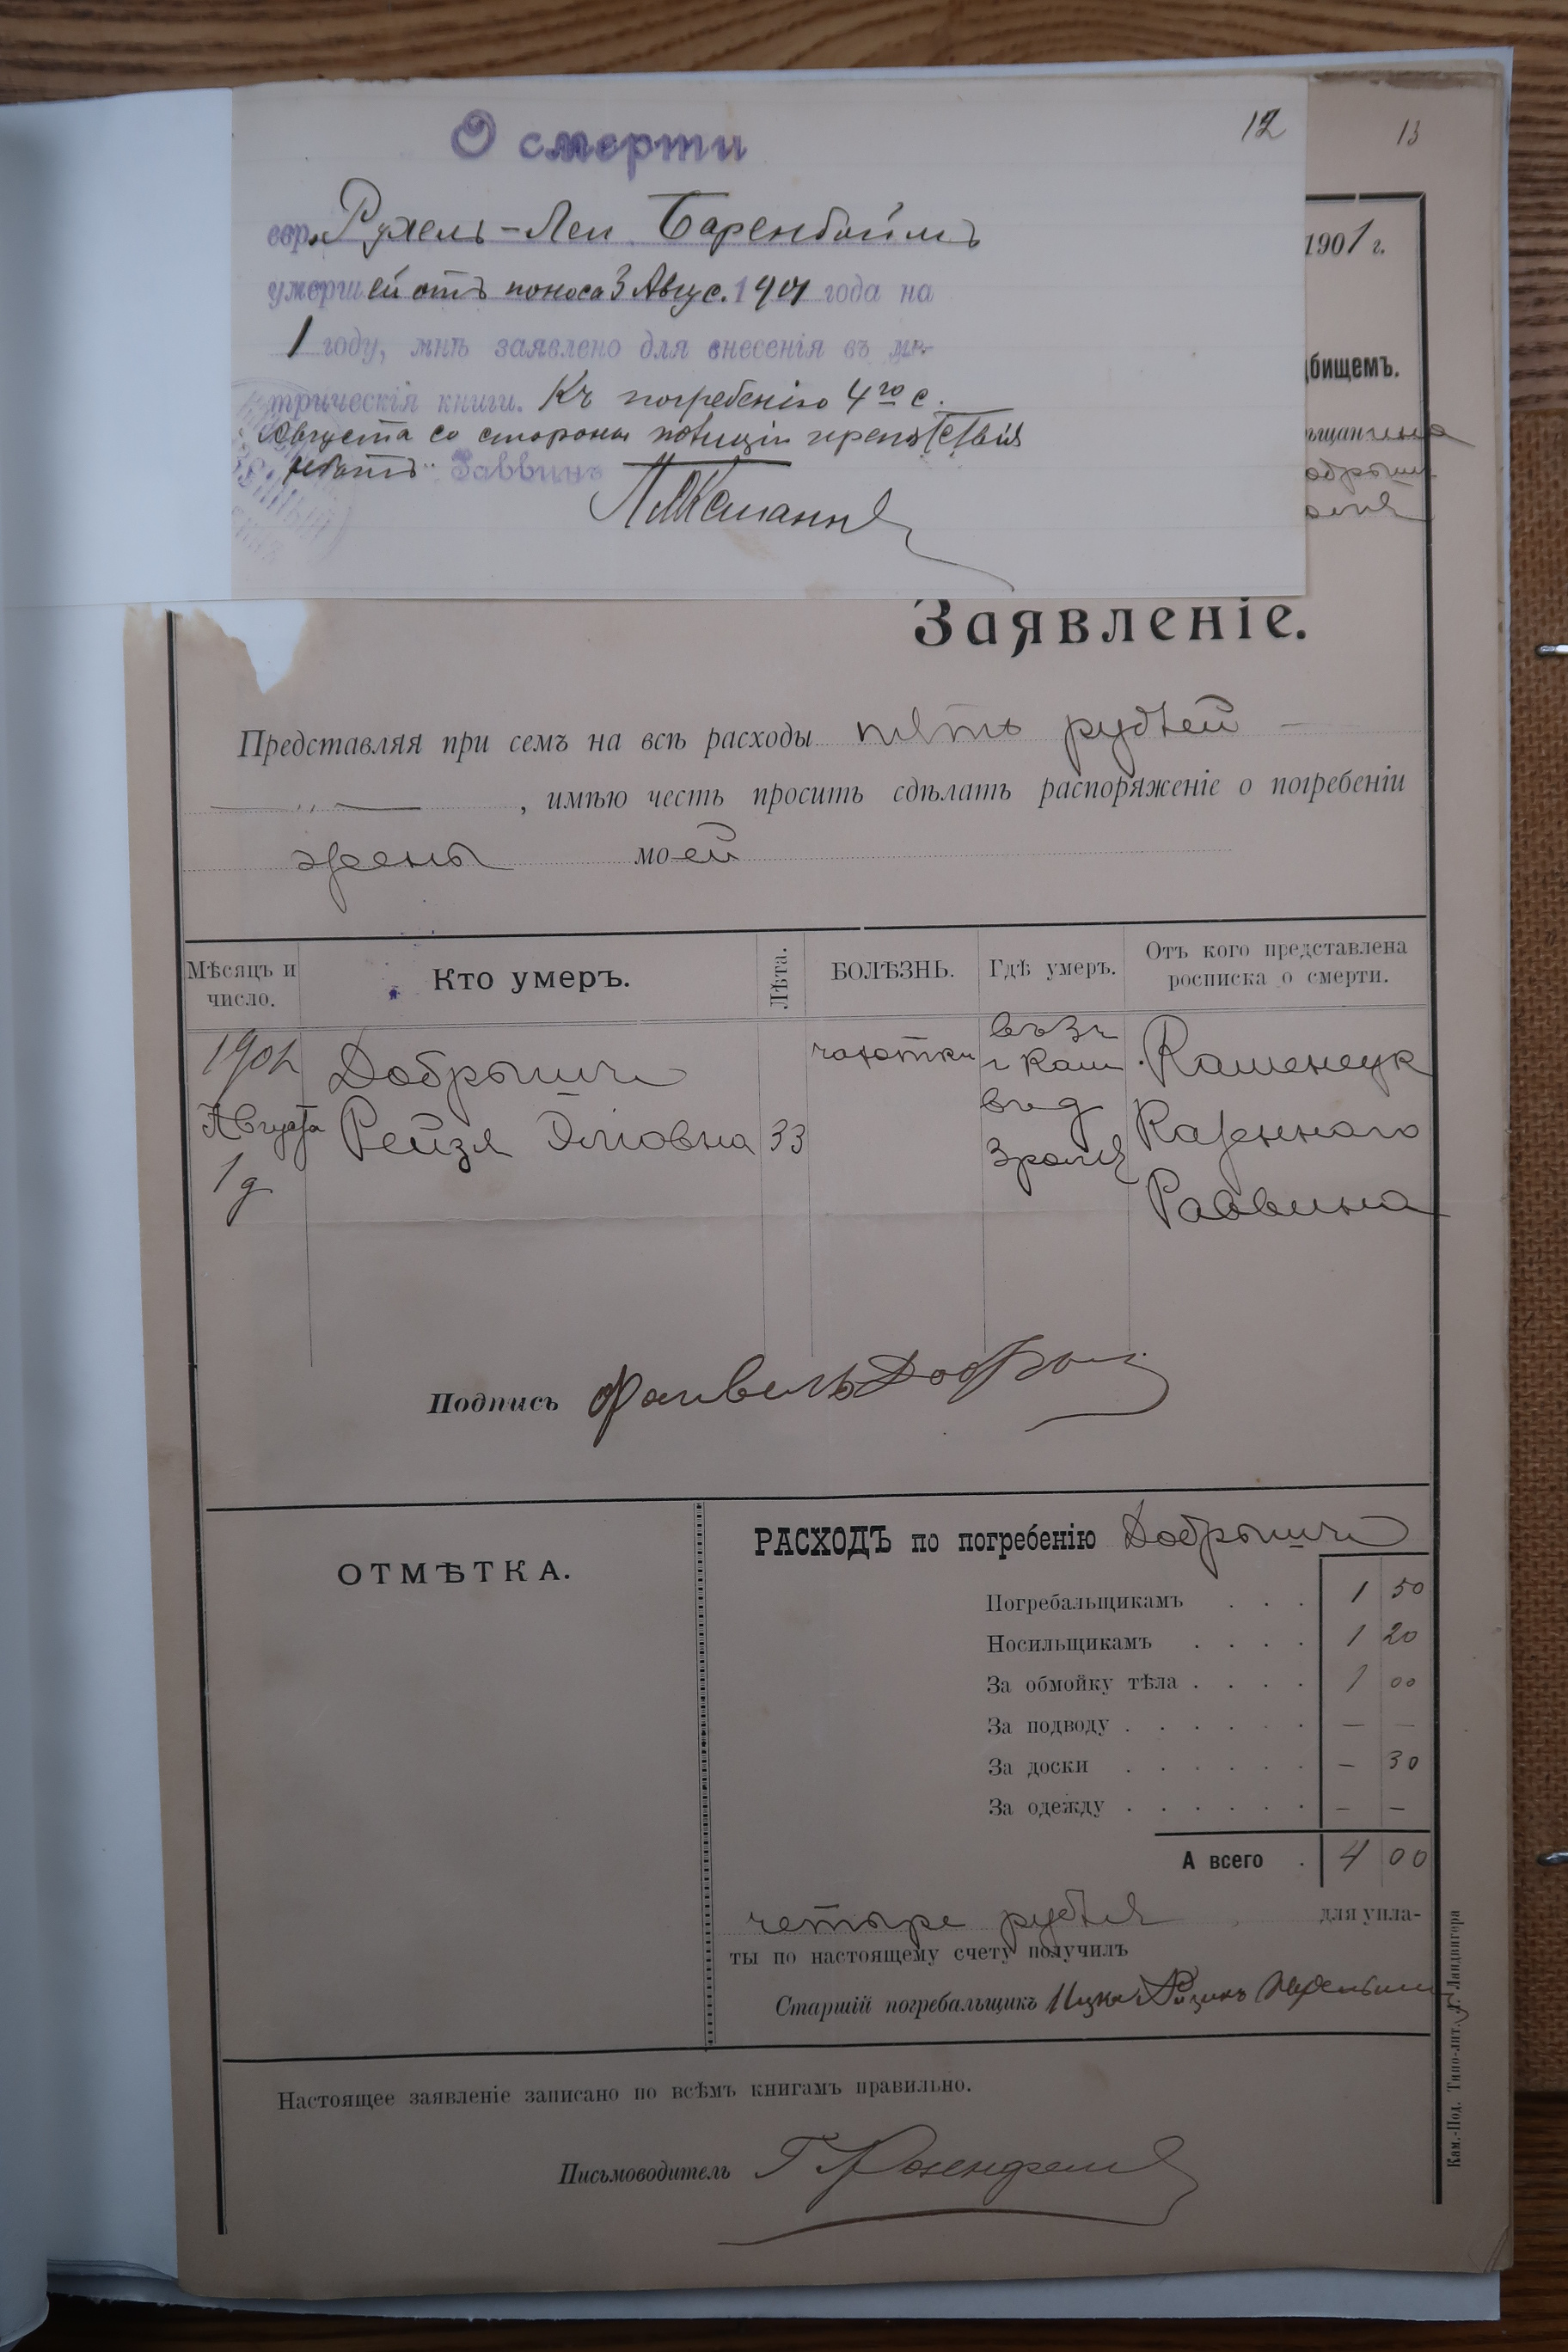 12
13
О смерти
евр. Рухель-Леи Баренбоймъ
умершей отъ поноса 3 Авгус. 1901 года на
1 году, мнѣ заявлено для внесенія въ ме-
трическія книги. Къ погребенію 4го с.
Августа со стороны полиціи препятствія
нѣтъ. Раввинъ
1901 г.
дбищемъ.
ѣщанина
Заявленіе.
Представляя при семъ на всѣ расходы пять рублей —
— „ — , имѣю честь просить сдѣлать распоряженіе о погребеніи
жены моей
Мѣсяцъ и число.
Кто умеръ.
Лѣта.
БОЛѢЗНЬ.
Гдѣ умеръ.
Отъ кого представлена росписка о смерти.
1901
Августа
1 д
Добрыши
Рейзя
33
чахотки
Каменецк
Казеннаго
Раввина
Подпись Файвель Добрыш
ОТМѢТКА.
РАСХОДЪ по погребенію Добрыши
Погребальщикамъ . . . 1 50
Носильщикамъ . . . . 1 20
За обмойку тѣла . . . . 1 00
За подводу . . . . . . — —
За доски . . . . . . — 30
За одежду . . . . . . — —
А всего . 4 00
четыре рубля для упла-
ты по настоящему счету получилъ
Старшій погребальщикъ Ицко
Настоящее заявленіе записано по всѣмъ книгамъ правильно.
Письмоводитель Г Розенфельд
Кам.-Под. Типо-лит. Л. Ландвигера